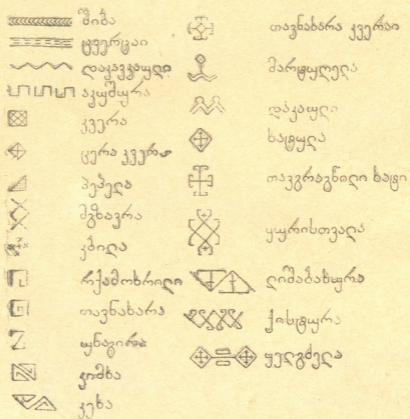 შიბა
ცვერცაი
დაკავკაული
აკუშურა
კვერა
ცერა კვერაი
პეპელა
მგზავრა
კბილა
რქამოხრილი
თავნახარა
უნაგირა
კიმხა
კეხა
თავნახარა კვერაი
მარტყულელა
დაკაული
ხატულა
თავგრაგნილი ხატი
ყურისთვალა
ღიშაბახურა
ქისტურა
ყელგძელა